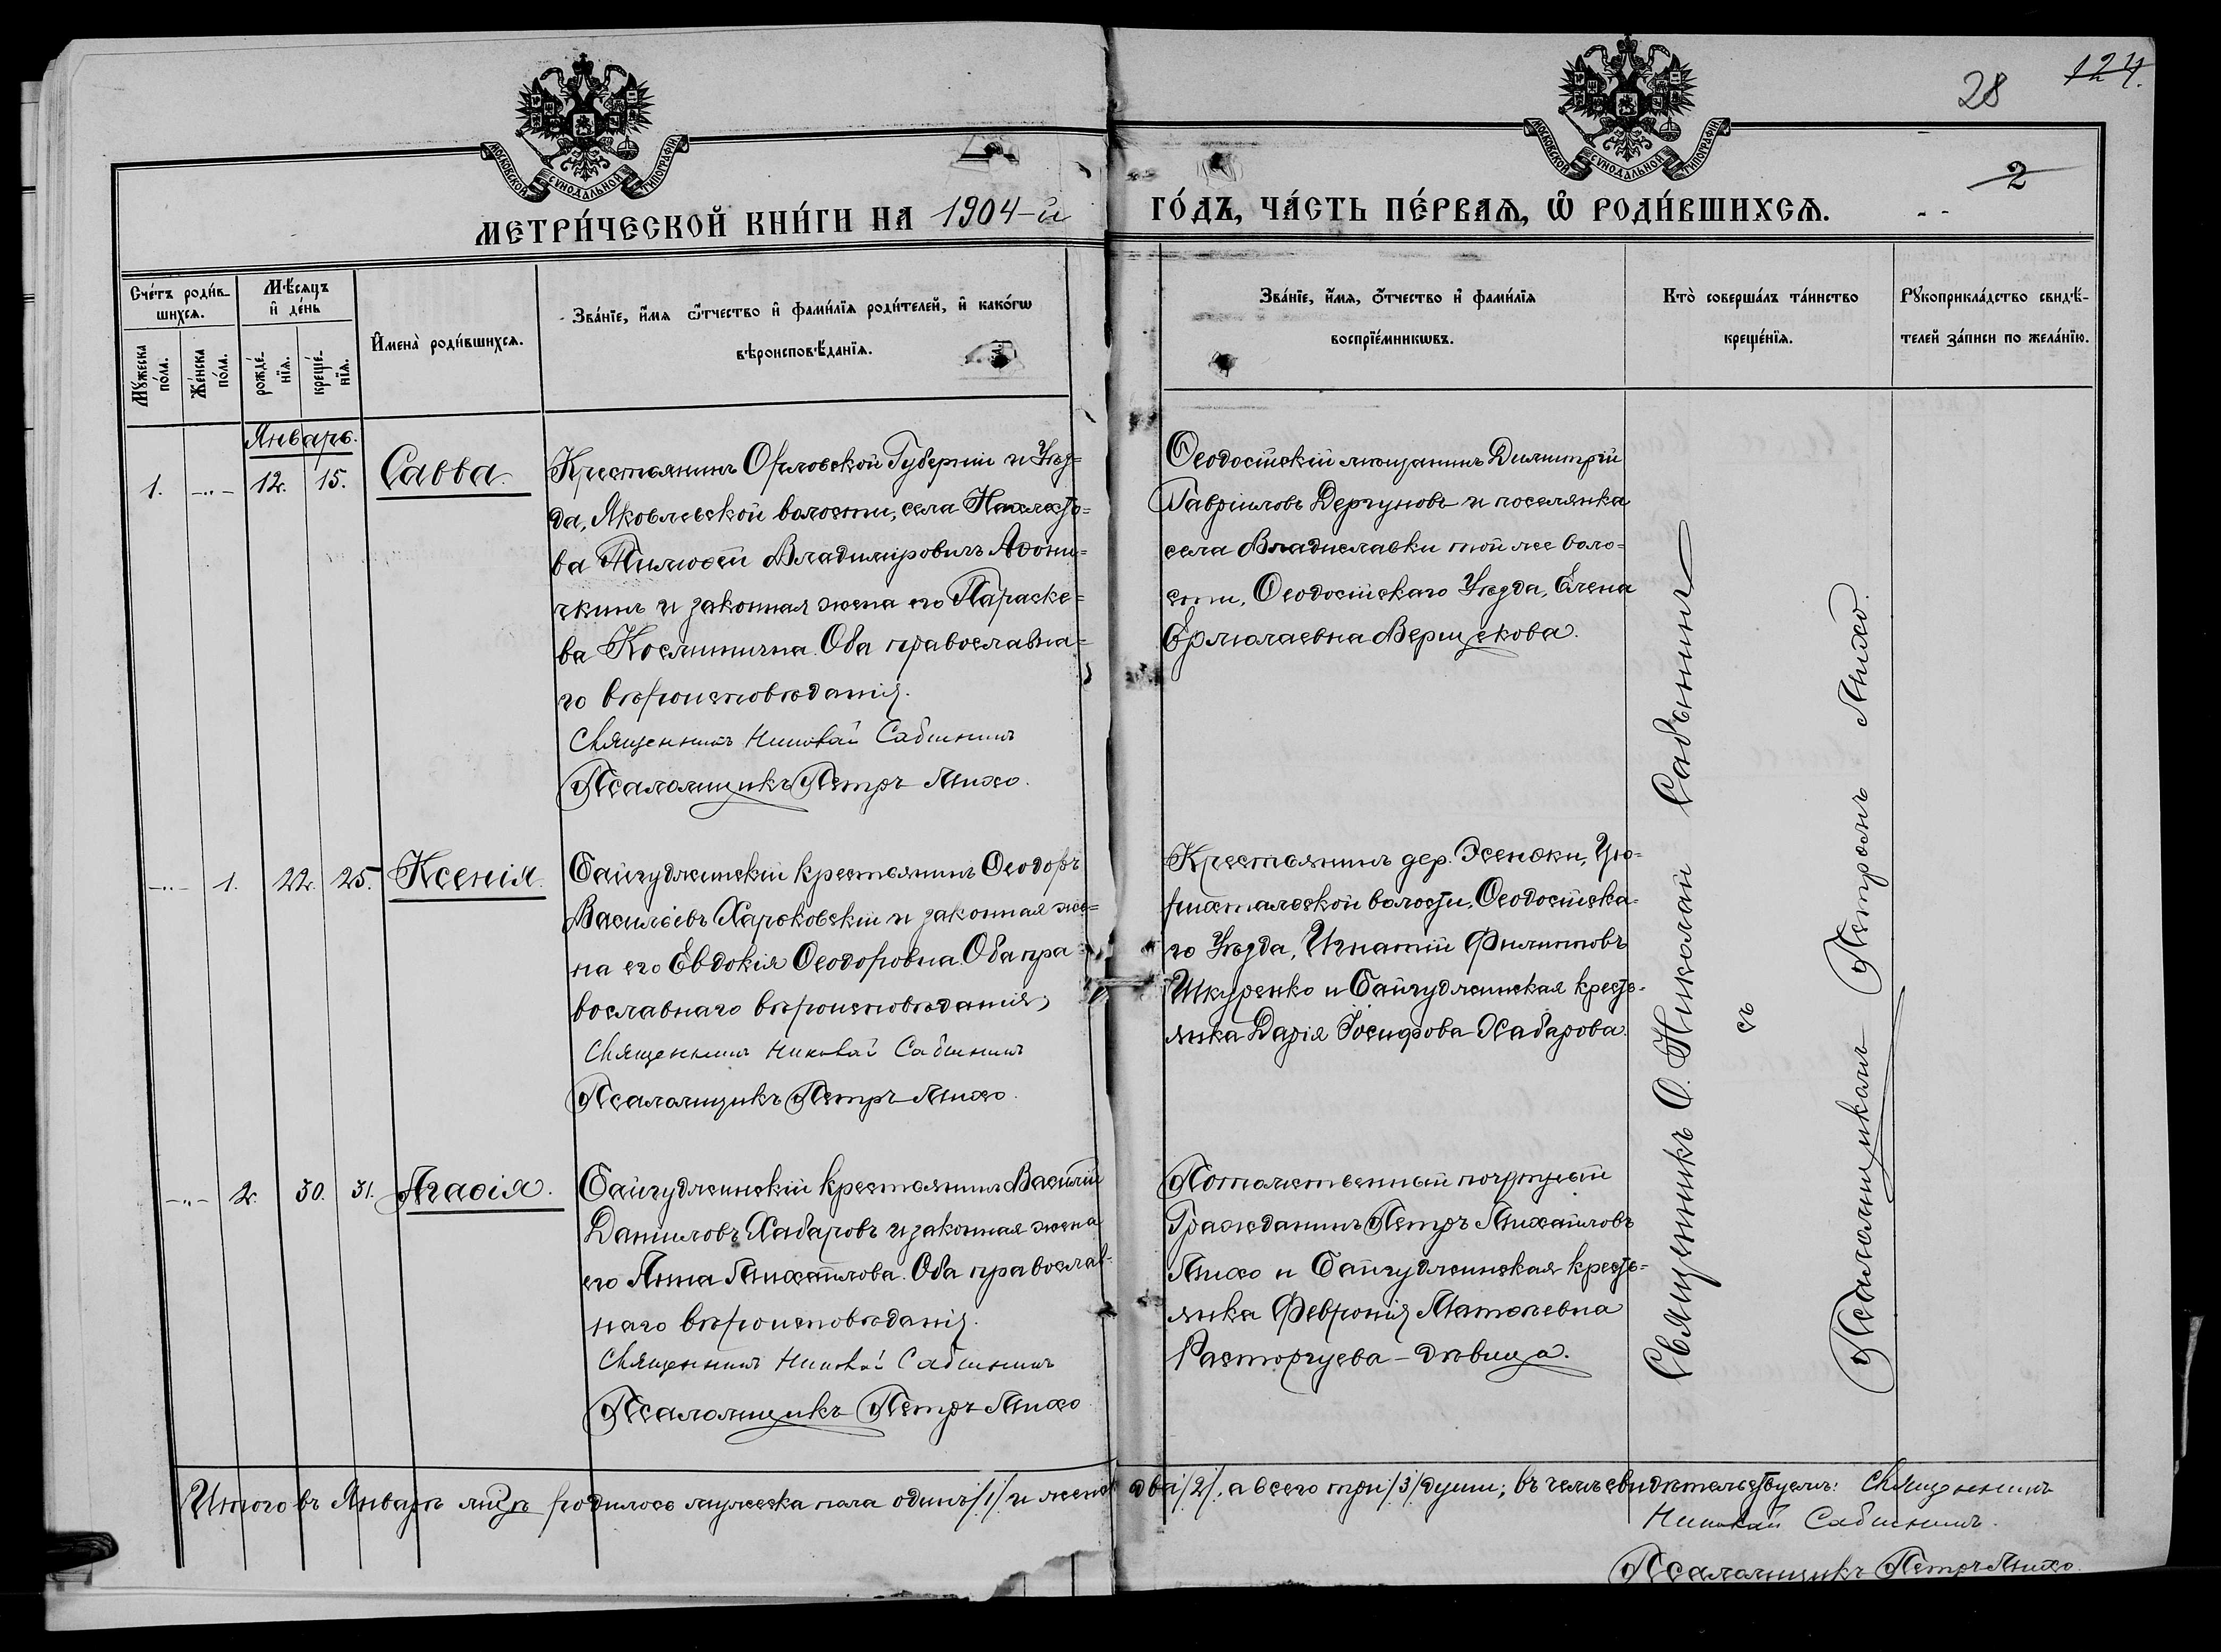 28 124.
2
МОСКОВСКОЙ СУНОДАЛЬНОЙ ТИПОГРАФІИ
МОСКОВСКОЙ СУНОДАЛЬНОЙ ТИПОГРАФІИ
МЕТРИ́ЧЕСКОЙ КНИ́ГИ НА 1904-й ГО́ДЪ, ЧА́СТЬ ПЕ́РВАЯ, Ѽ РОДИ́ВШИХСЯ.
Сче́тъ роди́в-
шихся.
Му́жеска по́ла.
Же́нска по́ла.
Мѣ́сяцъ
и҆ де́нь
рожде́-
нїя.
креще́-
нїя.
И҆мена̀ роди́вшихся.
Зва́нїе, и҆́мя ѻ҆́тчество и҆ фами́лїя роди́телей, и҆ како́гѡ
вѣроисповѣ́данїя.
Зва́нїе, и҆́мя, ѻ҆́тчество и҆ фами́лїя
воспрїе́мникѡвъ.
Кто̀ соверша́лъ та́инство
креще́нїя.
Рꙋкоприкла́дство свидѣ́-
телей за́писи по жела́нїю.
Январь.
1. -"- 12. 15. Савва.
Крестьянинъ Орловской Губерніи и Уѣз=
да, Яковлевской волости, села
ва Тимоѳей Владиміровичъ Аѳони=
чкинъ и законная жена его Параске=
ва Косминична. Оба православна=
го вѣроисповѣданія.
Священникъ Николай Сабининъ
Псаломщикъ Петръ Михо.
Ѳеодосійскій мѣщанинъ Димитрій
Гавріиловъ Дергуновъ и поселянка
села Владиславки той же воло=
сти, Ѳеодосійскаго Уѣзда, Елена
Ермолаевна Верщекова.
-"- 1. 22. 25. Ксенія.
Байгуджинскій крестьянинъ Ѳеодоръ
Васильевъ Харьковскій и законная же=
на его Евдокія Ѳеодоровна. Оба пра=
вославнаго вѣроисповѣданія,
Священникъ Николай Сабининъ
Псаломщикъ Петръ Михо.
Крестьянинъ дер. Эсенъки, Цю=
рихтальской волости, Ѳеодосійска=
го Уѣзда, Игнатій Филипповъ
Шкуренко и Байгуджинская кресть=
янка Дарія Іосифова Хабарова.
-"- 2. 30. 31. Агаѳія.
Байгуджинскій крестьянинъ Василій
Даниловъ Хабаровъ и законная жена
его Анна Михайлова. Оба православ-
наго вѣроисповѣданія.
Священникъ Николай Сабининъ
Псаломщикъ Петръ Михо
Потомственный почетный
Гражданинъ Петръ Михайловъ
Михо и Байгуджинская кресть=
янка Февронія Матвѣевна
Расторгуева - дѣвица.
Священникъ О. Николай Сабининъ
съ
Псаломщикомъ Петромъ Михо.
Итого въ Январѣ мцѣ родилось мужеска пола одинъ /1/ и женск двѣ /2/, а всего три /3/ души; въ чемъ свидѣтельствуемъ: Священникъ
Николай Сабининъ.
Псаломщикъ Петръ Михо.